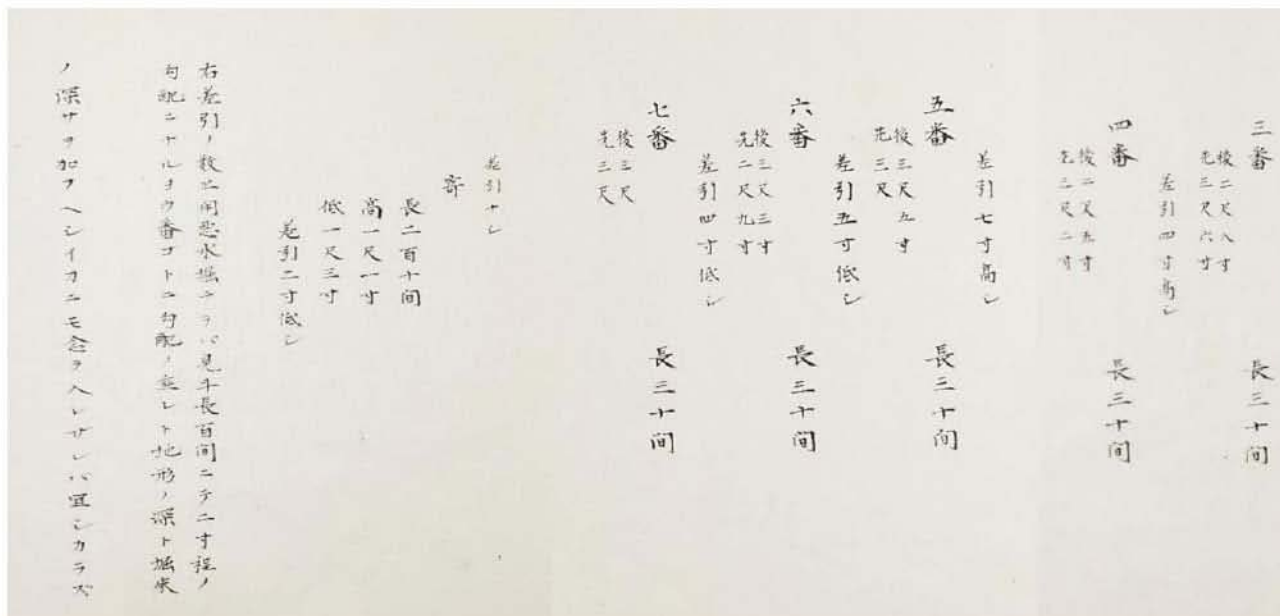 三番　長三十间
後二尺八寸
先三尺六寸
差引四寸高シ
四番　長三十间
後二尺五寸
先三尺二寸
差引七寸高シ
五番　長三十间
後三尺九寸
先三尺
差引五寸低シ
六番　長三十间
後三尺三寸
先二尺九寸
差引四寸低シ
七番　長三十间
後三尺
先三尺
差引ナシ
寄
長二百十间
高一尺一寸
低一尺三寸
差引二寸低シ
右差引ノ数二间悪水堀ニテハ見斗長百间ニテ二寸程ノ
勾配ニナルヨウ番ゴトニ勾配ノ レト地形ノ深ト堀床
ノ深サヲ加フヘシイカニモ念ヲ入レザレバ宜シカラズ